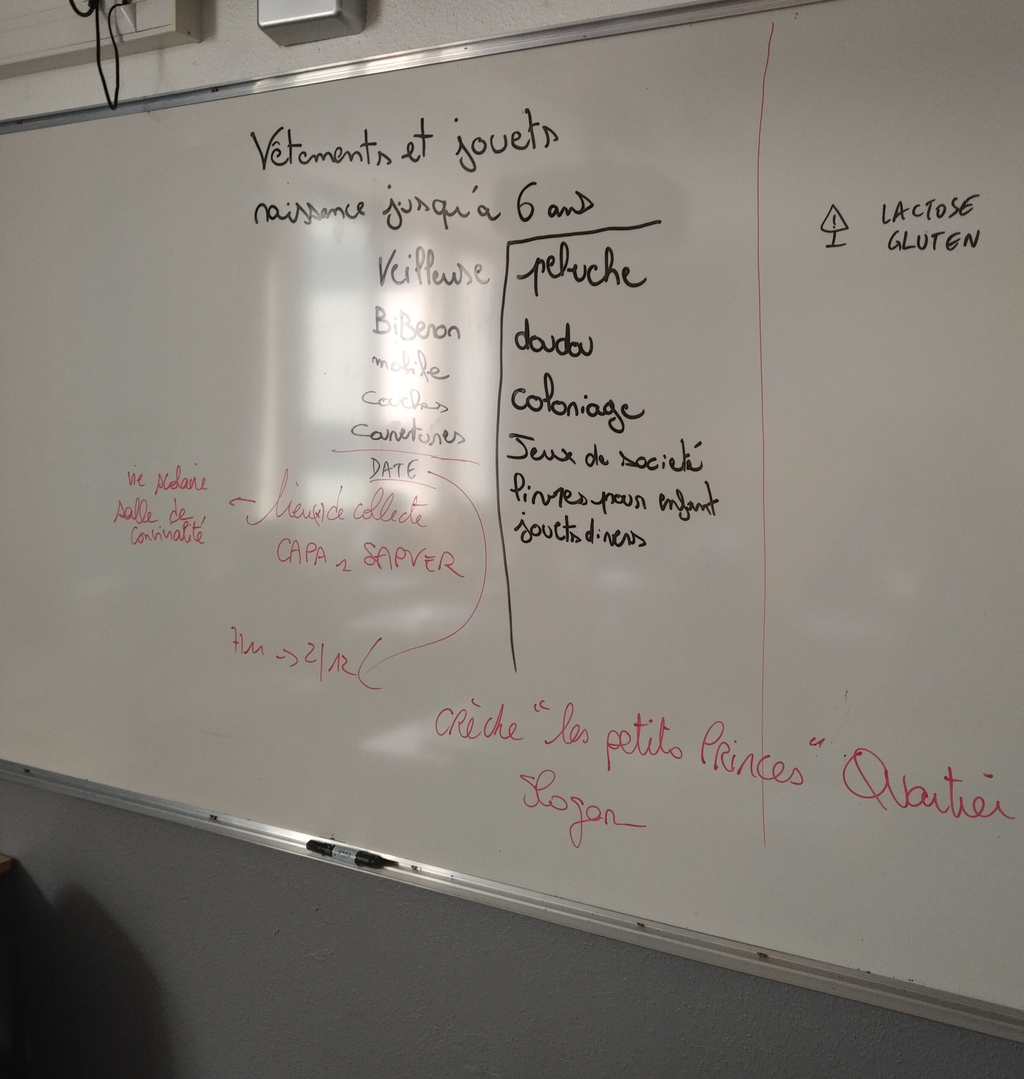 Vêtements et jouets
naissance jusqu'à 6 ans
Veilleuse
BiBeron
mobile
couches
DATE
peluche
doudou
coloriage
Jeux de société
livres pour enfant
jouets divers
vie scolaire
salle de
convivialité
lieu(x) de collecte
CAPA 2 SAPVER
7/11 -> 2/12
crèche "les petits Princes" Quartier
Slogan
LACTOSE
GLUTEN